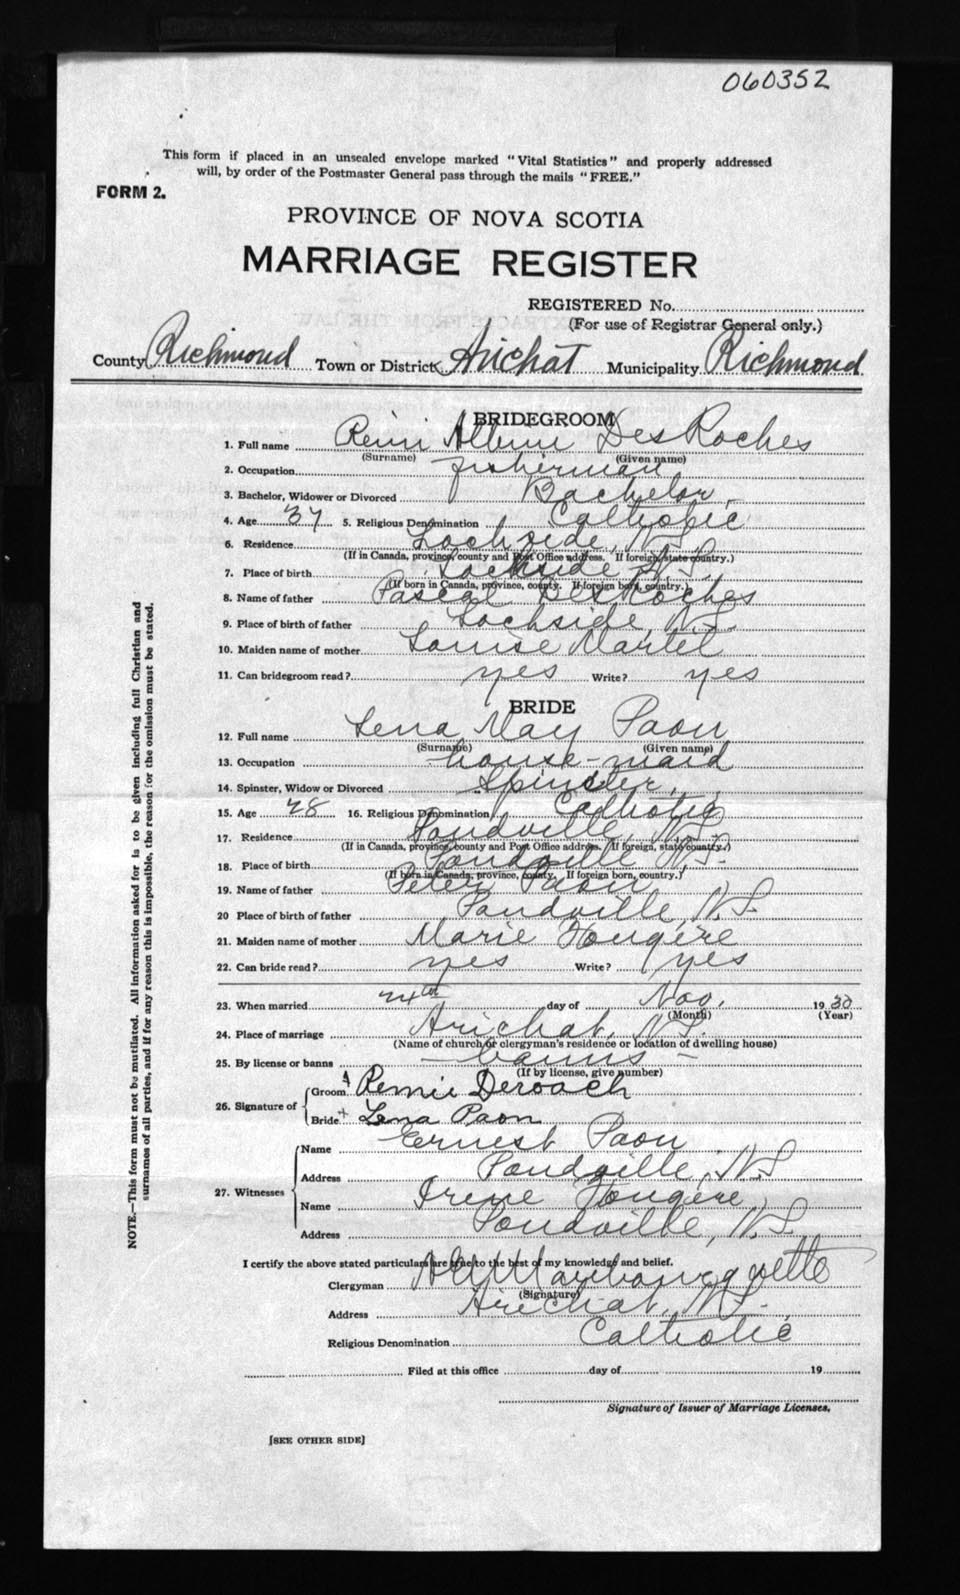 060352
This form if placed in an unsealed envelope marked "Vital Statistics" and properly addressed
will, by order of the Postmaster General pass through the mails "FREE."
FORM 2.
PROVINCE OF NOVA SCOTIA
MARRIAGE REGISTER
REGISTERED No.
(For use of Registrar General only.)
County Richmond Town or District Arichat Municipality Richmond
BRIDEGROOM
1. Full name Remi DesRoches
(Surname) (Given name)
2. Occupation fisherman
3. Bachelor, Widower or Divorced Bachelor.
4. Age 37 5. Religious Denomination Catholic
6. Residence Lochside, N.S.
(If in Canada, province, county and Post Office address. If foreign, state country.)
7. Place of birth Lochside N.S.
(If born in Canada, province, county. If foreign born, country.)
8. Name of father Pascal DesRoches
9. Place of birth of father Lochside, N.S.
10. Maiden name of mother Louise Martel
11. Can bridegroom read? yes Write? yes
BRIDE
12. Full name Lena May Paon
(Surname) (Given name)
13. Occupation house-maid
14. Spinster, Widow or Divorced Spinster,
15. Age 28 16. Religious Denomination Catholic
17. Residence Pondville, N.S.
(If in Canada, province, county and Post Office address. If foreign, state country.)
18. Place of birth Pondville N.S.
(If born in Canada, province, county. If foreign born, country.)
19. Name of father Peter Paon
20 Place of birth of father Pondville, N.S.
21. Maiden name of mother Marie Fougère
22. Can bride read? yes Write? yes
23. When married 24th day of Nov. 1930
(Month) (Year)
24. Place of marriage Arichat, N.S.
(Name of church or clergyman's residence or location of dwelling house)
25. By license or banns - banns -
(If by license, give number)
26. Signature of Groom Remie Deroach
Bride + Lena Paon
27. Witnesses
Name Ernest Paon
Address Pondville, N.S.
Name Irene Fougère
Address Pondville, N.S.
I certify the above stated particulars are true to the best of my knowledge and belief.
Clergyman
(Signature)
Address Arichat, N.S.
Religious Denomination Catholic
Filed at this office day of 19
Signature of Issuer of Marriage Licenses.
[SEE OTHER SIDE]
NOTE.—This form must not be mutilated. All information asked for is to be given including full Christian and
surnames of all parties, and if for any reason this is impossible, the reason for the omission must be stated.